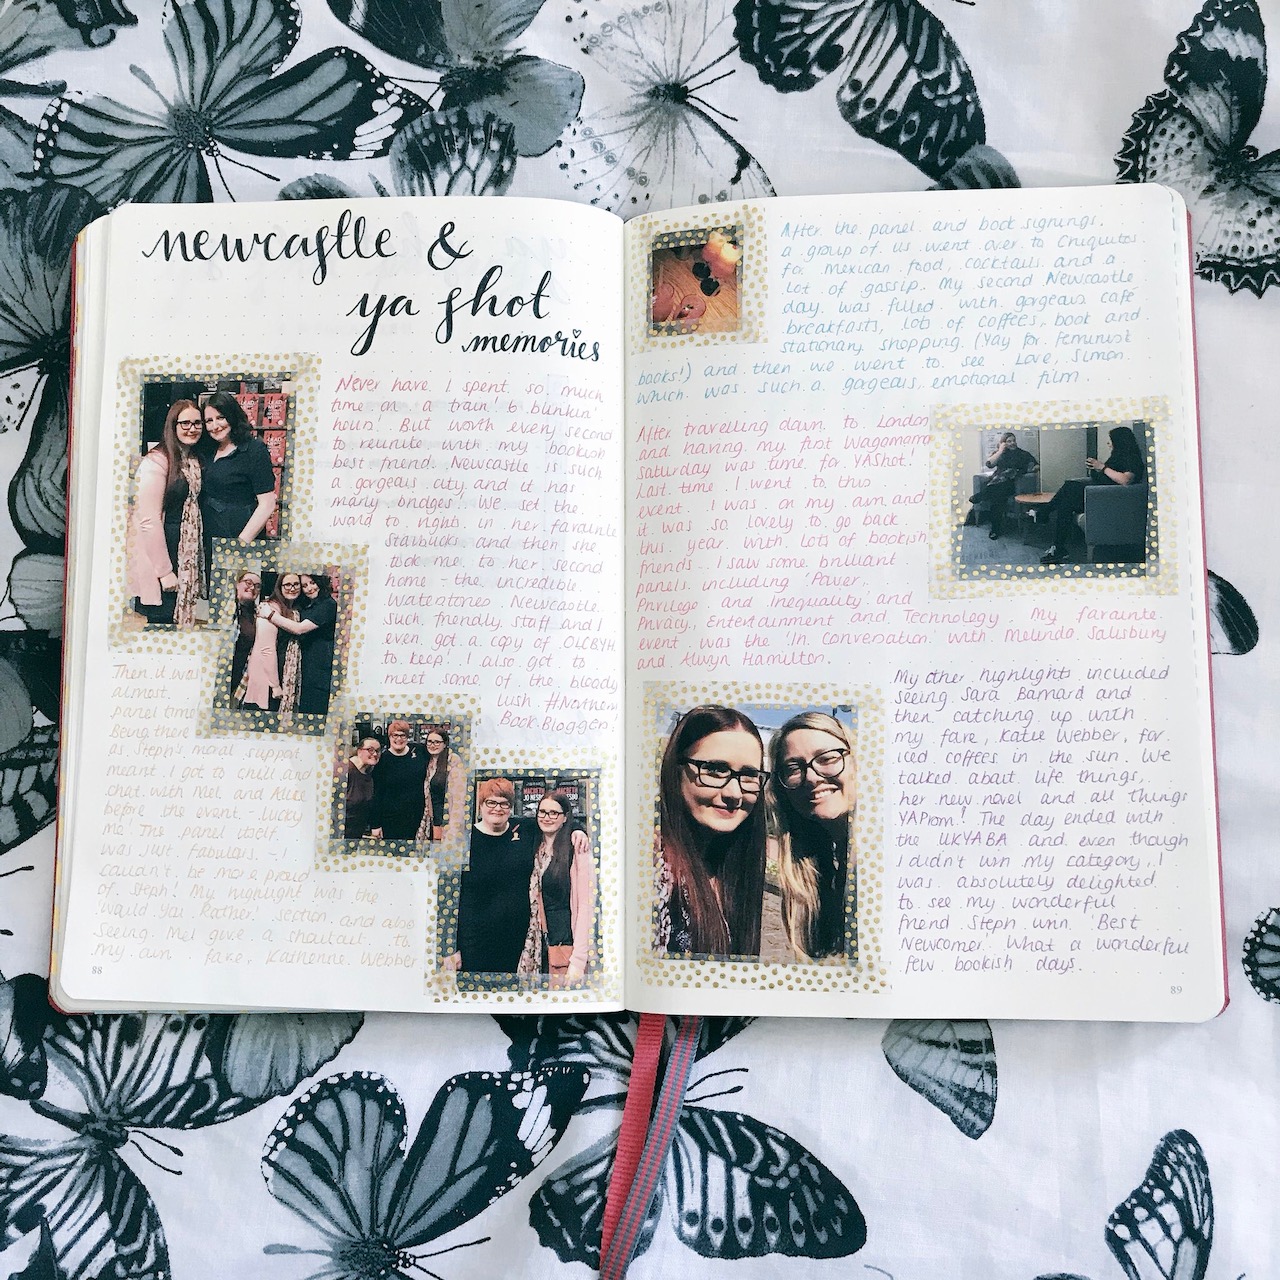 newcastle &
ya shot
memories
Never have I spent so much
time on a train! 6 blinkin'
hours! But worth every second
to reunite with my bookish
best friend. Newcastle is such
a gorgeous city and it has
many bridges. We set the
world to rights in her favourite
Starbucks and then she
took me to her second
home - the incredible
Waterstones Newcastle.
Such friendly staff and I
even got a copy of OLCBYH
to keep! I also got to
meet some of the bloody
lush #Northern
Book Bloggers!
Then it was
almost
panel time
Being there
as Steph's moral support
meant I got to chill and
chat with Mel and Alice
before the event - lucky
me! The panel itself
was just fabulous - I
couldn't be more proud
of Steph! My highlight was the
'Would You Rather' section and also
seeing Mel give a shoutout to
my own fave, Katherine Webber
88
After the panel and book signings,
a group of us went over to Chiquitos
for Mexican food, cocktails and a
lot of gossip. My second Newcastle
day was filled with gorgeous café
breakfasts, lots of coffees, book and
stationary shopping (Yay for feminist
books!) and then we went to see Love, Simon
which was such a gorgeous, emotional film.
After travelling down to London
and having my first Wagamama
Saturday was time for YAShot!
Last time I went to this
event I was on my own and
it was so lovely to go back
this year with lots of bookish
friends. I saw some brilliant
panels including 'Power,
Privilege and Inequality' and
Privacy, Entertainment and Technology. My favourite
event was the 'In Conversation' with Melinda Salisbury
and Alwyn Hamilton.
My other highlights included
seeing Sara Barnard and
then catching up with
my fave, Katie Webber, for
iced coffees in the sun. We
talked about life things,
her new novel and all things
YAProm! The day ended with
the UKYABA and even though
I didn't win my category, I
was absolutely delighted
to see my wonderful
friend Steph win 'Best
Newcomer. What a wonderful
few bookish days.
89
MACBETH
JO NESBO
MACBETH